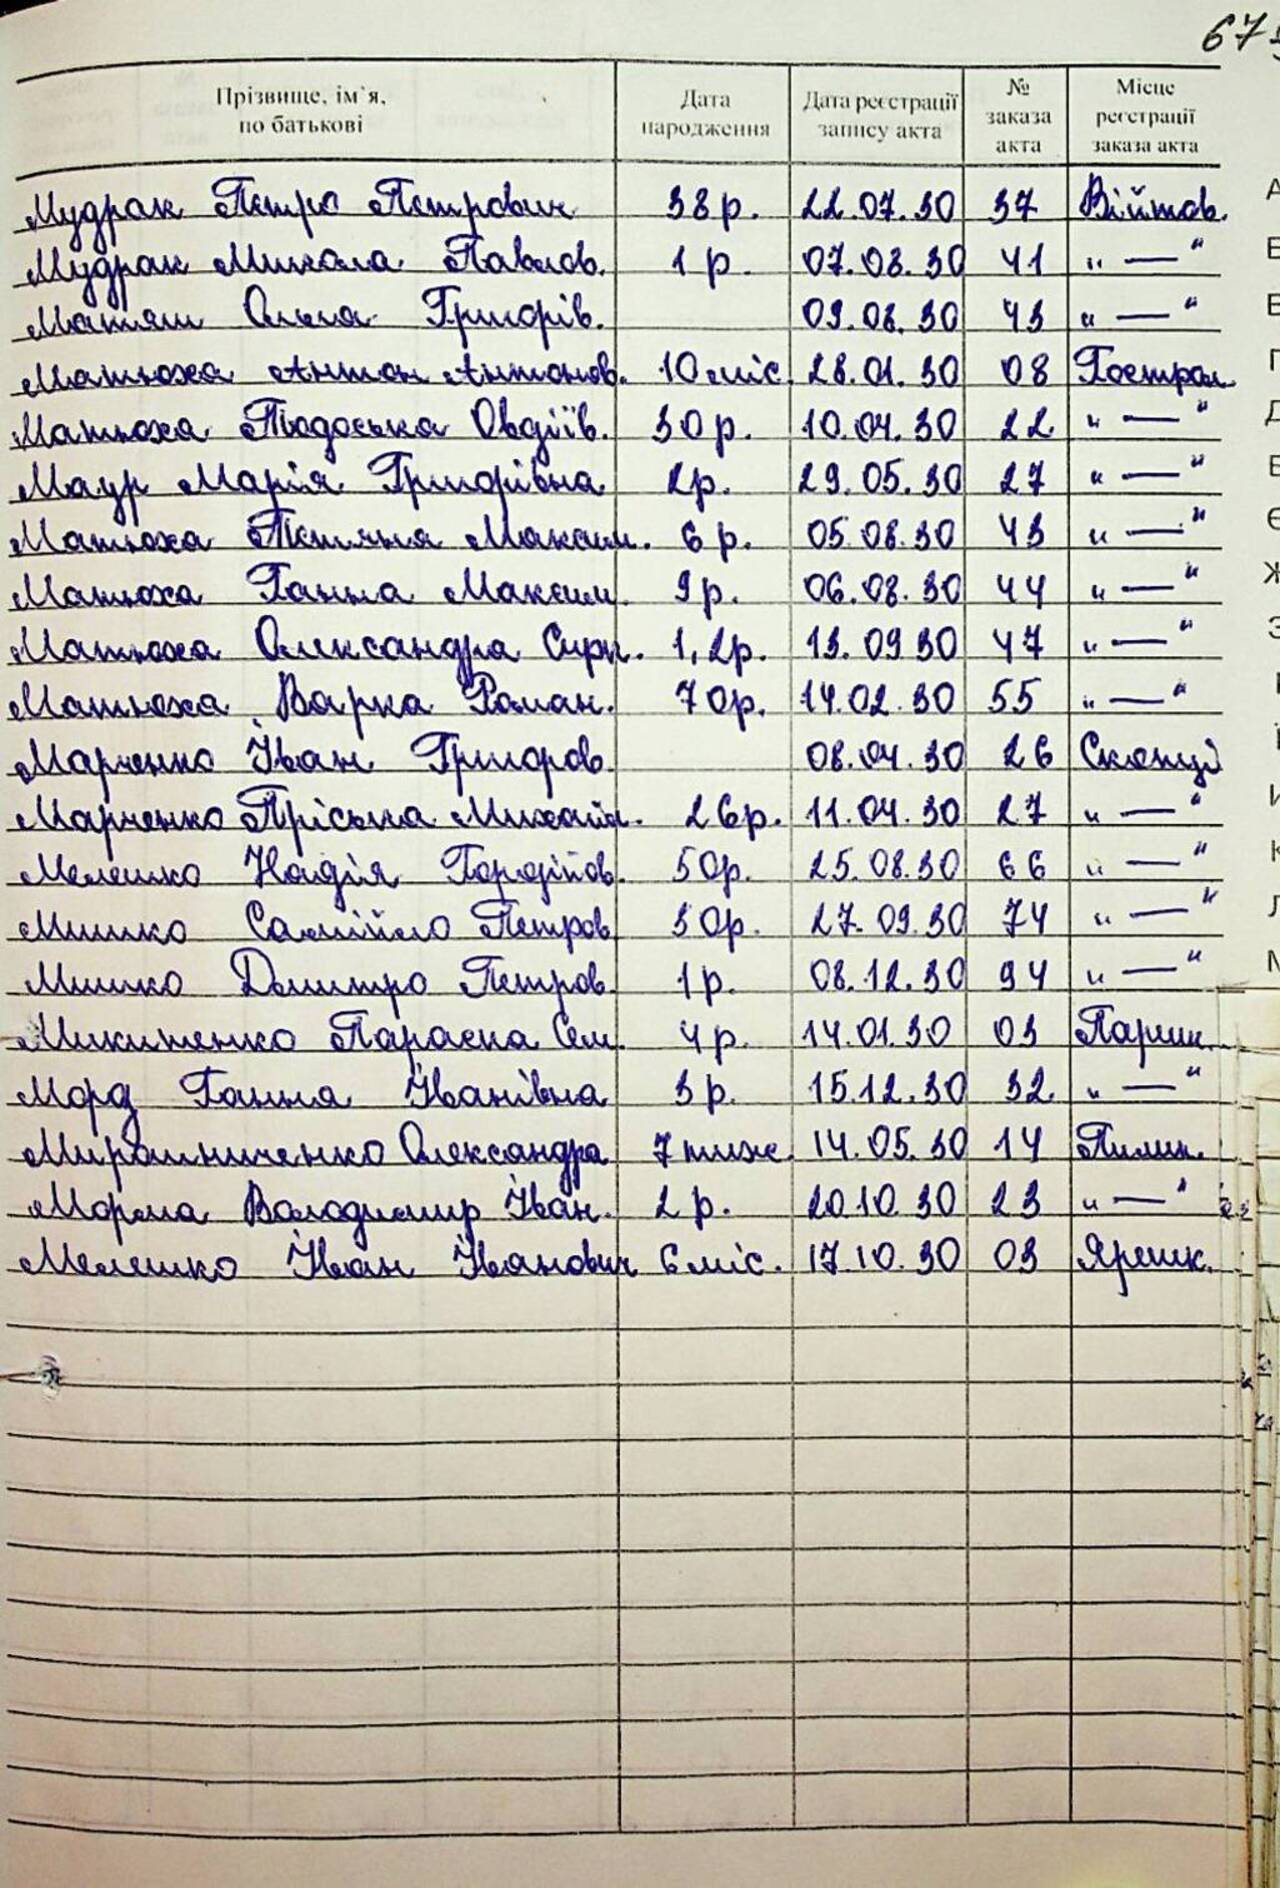 67
Прізвище, ім`я, по батькові Дата народження Дата реєстрації запису акта № заказа акта Місце реєстрації заказа акта
Мудрак Петро Петрович 38 р. 22.07.30 37 Війтов.
Мудрак Микола Павлов. 1 р. 07.08.30 41 " — "
Матяш Ольга Григорів. 09.08.30 43 " — "
Матюха Антон Антонов. 10 міс. 28.01.30 08 Гострол.
Матюха Тодоська Овдіїв. 30 р. 10.04.30 22 " — "
Маур Марія Григорівна 2 р. 29.05.30 27 " — "
Матюха Тетяна Максим. 6 р. 05.08.30 43 " — "
Матюха Ганна Максим. 9 р. 06.08.30 44 " — "
Матюха Олександра 1,2 р. 13.09 30 47 " — "
Матюха Варка Роман. 70 р. 14.02.30 55 " — "
Марченко Іван Григоров. 08.04.30 26 Скопці
Марченко Пріська Михайл. 26 р. 11.04.30 27 " — "
Мелешко Надія Гордіїв. 50 р. 25.08.30 66 " — "
Мишко Самійло Петров 30 р. 27.09.30 74 " — "
Мишко Дмитро Петров. 1 р. 08.12.30 94 " — "
Микитенко Параска Сем. 4 р. 14.01.30 03 Париш.
Морд Ганна Іванівна 3 р. 15.12.30 32. " — "
Мирошниченко Олександра 7 тижс. 14.05.30 14 Пилип.
Морма Володимир Іван. 2 р. 20.10.30 23 " — "
Мелешко Іван Іванович 6 міс. 17.10.30 03 Ярешк.